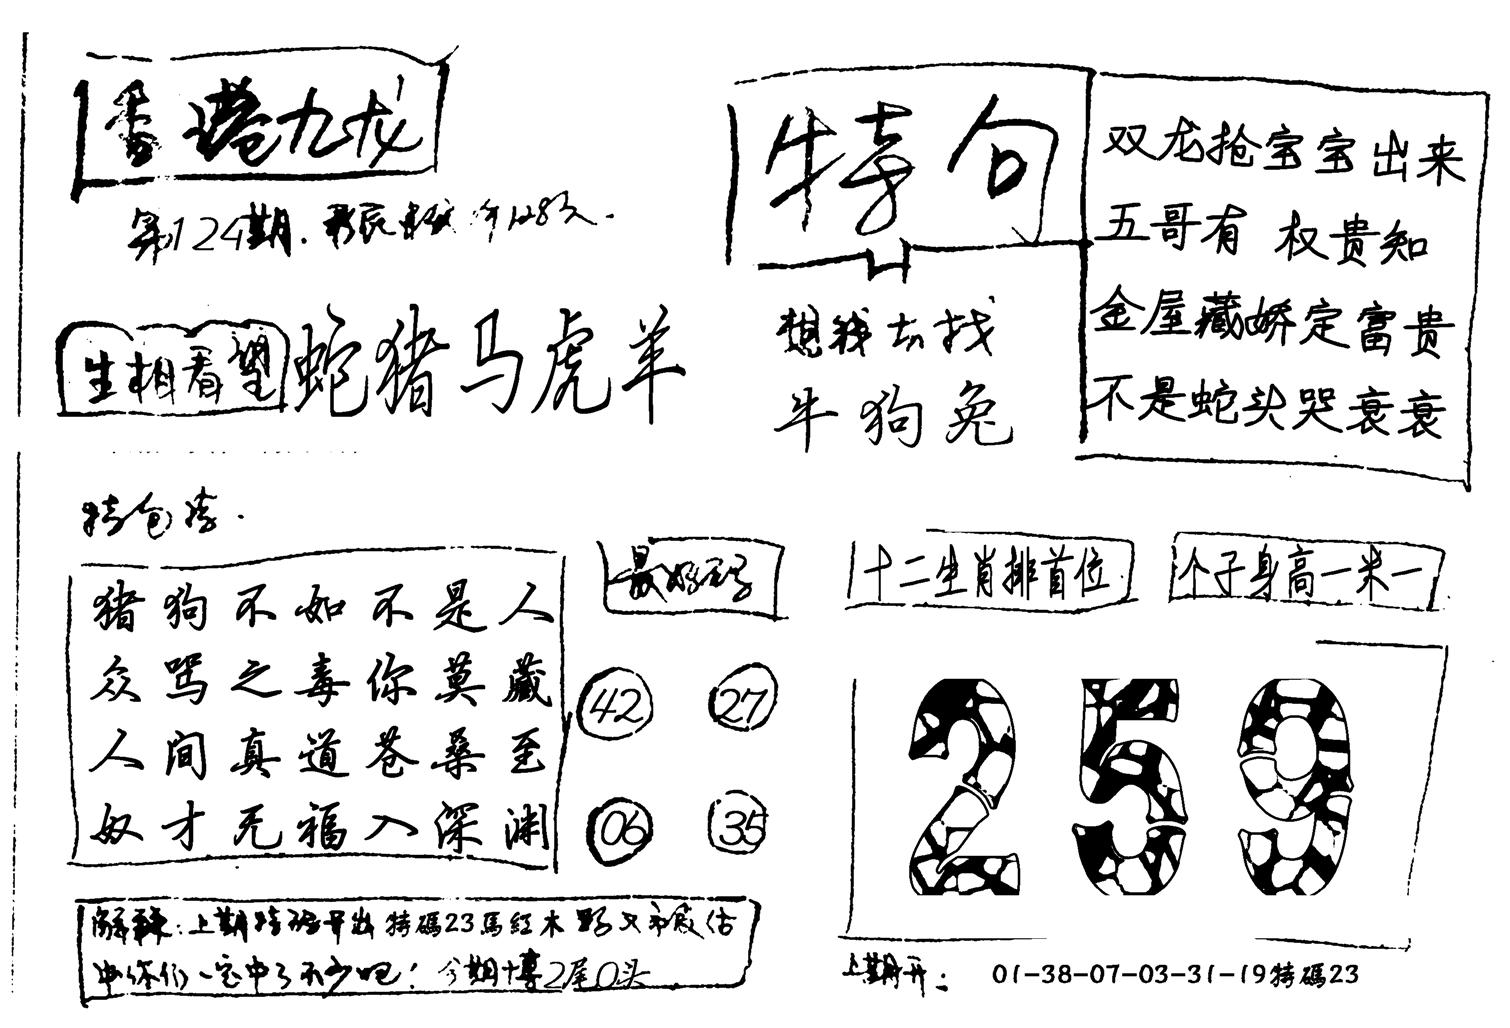 香港九龙
第124期.
生相看望 蛇猪马虎羊
特句
想我去找
牛狗兔
双龙抢宝宝出来
五哥有 权贵知
金屋藏娇定富贵
不是蛇头哭哀哀
猪狗不如不是人
众骂之毒你莫藏
人间真道苍桑至
奴才无福入深渊
42 27
06 35
十二生肖排首位
个子身高一米一
259
上期特码开出特碼23馬紅木
你们一定中了不少吧! 今期十專2尾0头
上期开: 01-38-07-03-31-19特碼23